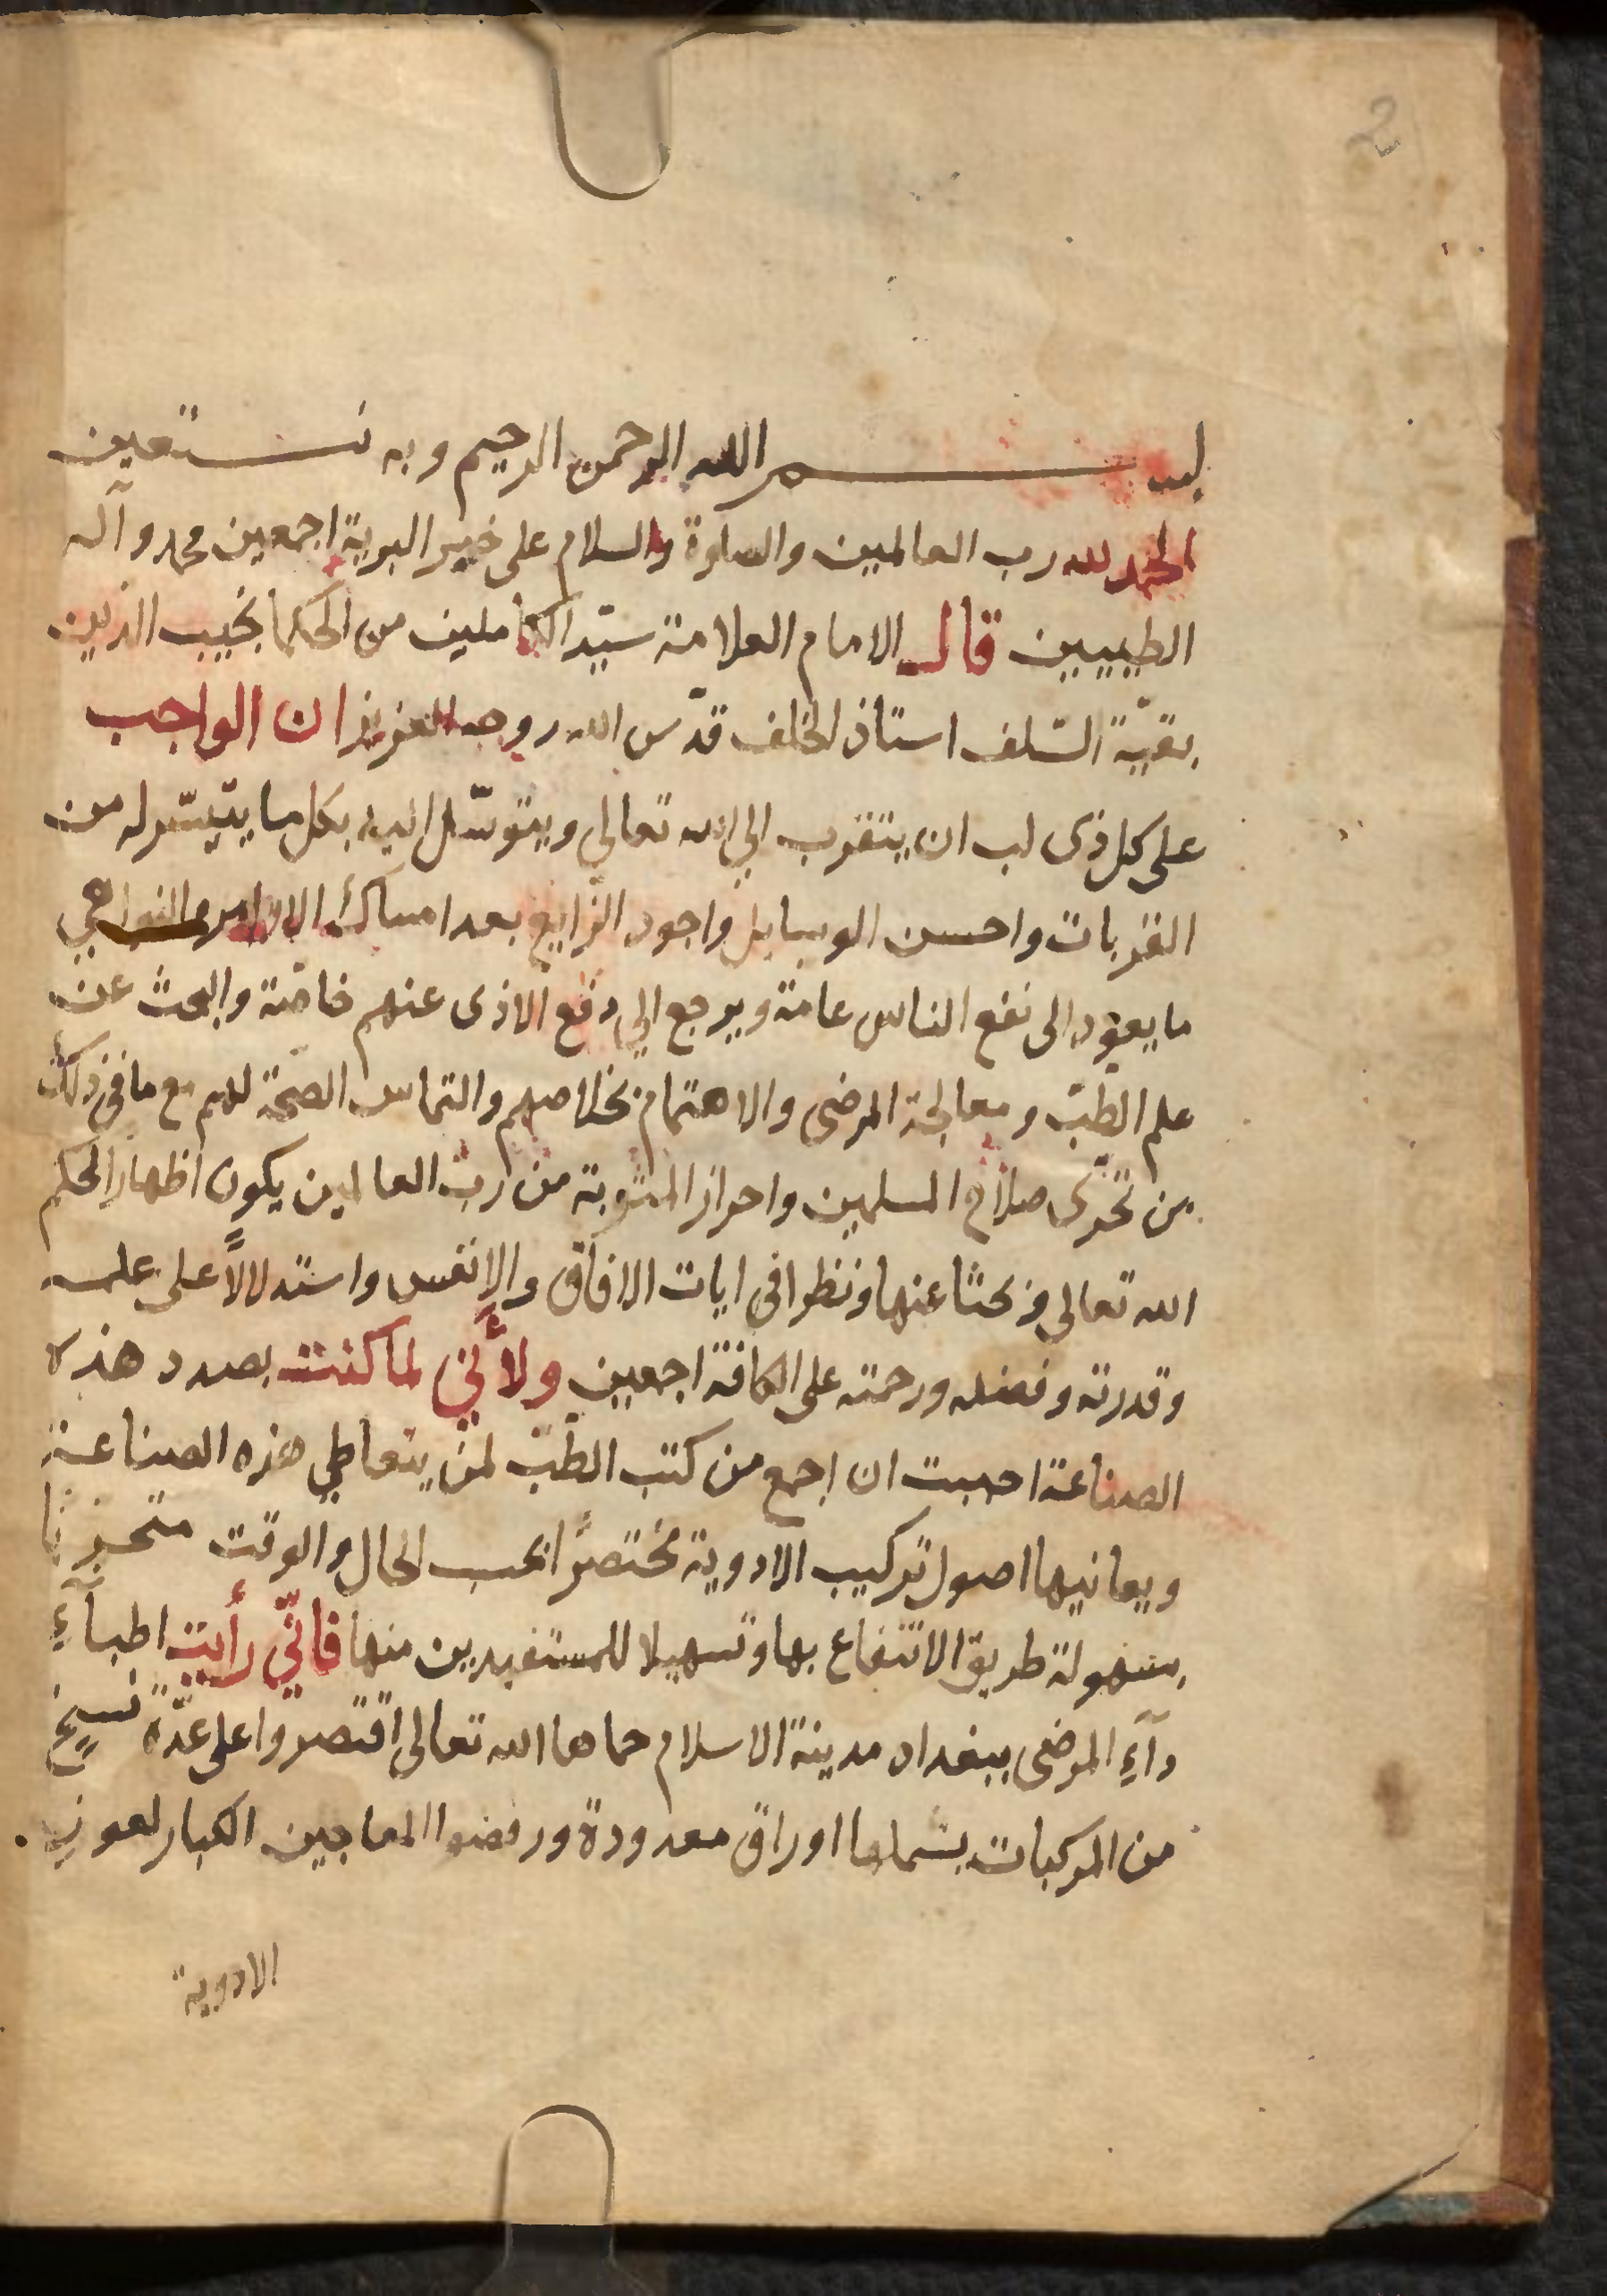 2
بسم الله الرحمن الرحيم وبه نستعين
الحمد لله رب العالمين والصلوة والسلام على خير البرية اجمعين محمد وآله
الطيبين قال الامام العلامة سيّد الكاملين من الحكما نجيب الدين
بقيّة السّلف استاذ الخلف قدّس الله روحه العزيز ان الواجب
على كل ذى لب ان يتقرب الي الله تعالي ويتوسّل اليه بكل ما يتيسّر له من
القربات واحسن الوسايل واجود الزّايع بعد امساك الاوامر والنواهي
ما يعود الى نفع الناس عامة ويرجع الي دفع الاذى عنهم خاصّة والبحث عن
علم الطبّ ومعالجة المرضى والاهتمام بخلاصهم والتماس الصحّة لهم مع ما فى ذلك
من تحرّى صلاح المسلمين واحراز المثوبة من رب العالمين يكون اظهاراً لحكم
الله تعالى وبحثا عنها ونظرا فى ايات الافاق والانفس واستدلالاً على علمه
وقدرته وفضله ورحمته على الكافة اجمعين ولأنّي لما كنت بصدد هذه
الصناعة احببت ان اجمع من كتب الطّبّ لمن يتعاطي هذه الصناعة
ويعانيها اصول تركيب الادوية مختصراً بحسب الحال والوقت متحريا
سهولة طريق الانتفاع بها وتسهيلا للمستفيدين منها فانّي رأيت اطبآءِ
دآءِ المرضى ببغداد مدينة الاسلام حماها الله تعالى اقتصروا على عدّة نسخ
من المركبات يشملها اوراق معدودة ورفضوا المعاجين الكبار لعوز
الادوية